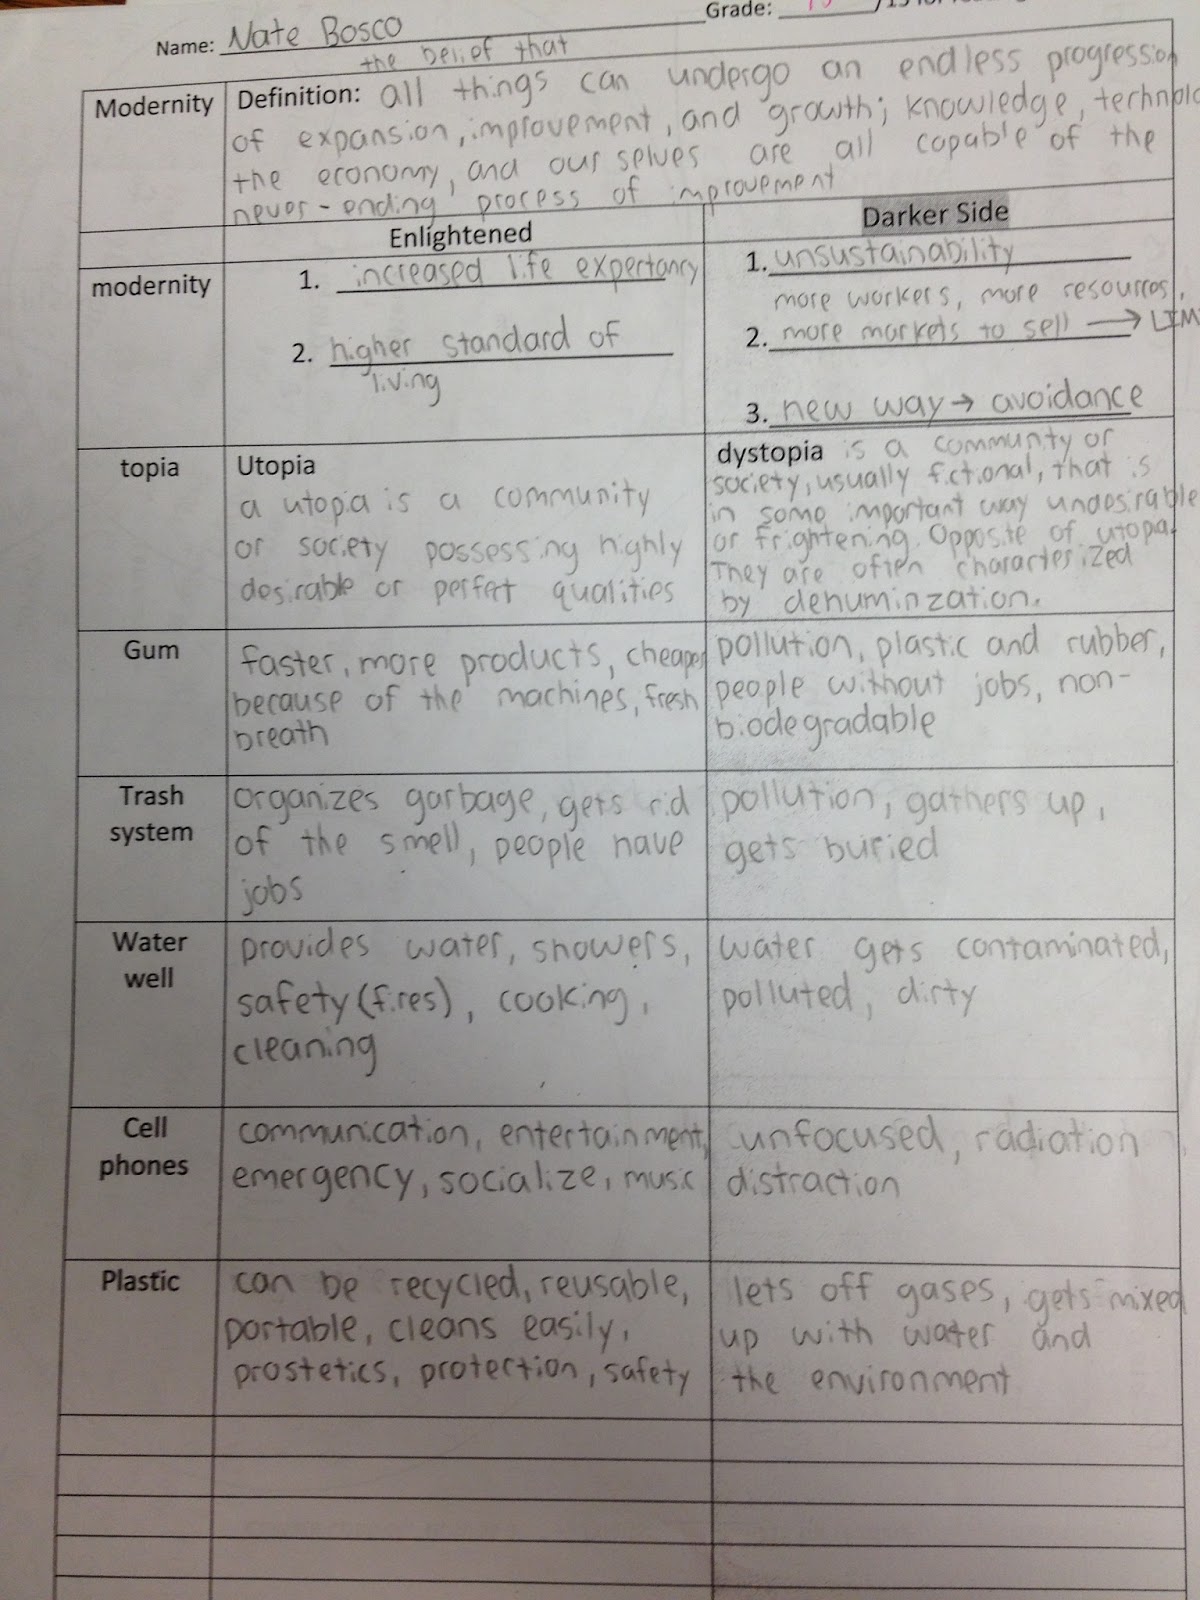 Grade:
Name: Nate Bosco
the belief that
Modernity
Definition: all things can undergo an endless progression
of expansion, improvement, and growth; knowledge, technolo
the economy, and our selves are all capable of the
never-ending process of improvement
Enlightened
Darker Side
modernity
1. increased life expectancy
2. higher standard of
living
1. unsustainability
more workers, more resources,
2. more markets to sell → LIM
3. new way → avoidance
topia
Utopia
a utopia is a community
or society possessing highly
desirable or perfect qualities
dystopia is a community or
society, usually fictional, that is
in some important way undesirable
or frightening. Opposite of utopia.
They are often characterized
by dehuminzation.
Gum
faster, more products, cheaper
because of the machines, fresh
breath
pollution, plastic and rubber,
people without jobs, non-
biodegradable
Trash
system
organizes garbage, gets rid
of the smell, people have
jobs
pollution, gathers up,
gets buried
Water
well
provides water, showers,
safety (fires), cooking,
cleaning
water gets contaminated,
polluted, dirty
Cell
phones
communication, entertainment,
emergency, socialize, music
unfocused, radiation
distraction
Plastic
can be recycled, reusable,
portable, cleans easily,
prostetics, protection, safety
lets off gases, gets mixed
up with water and
the environment